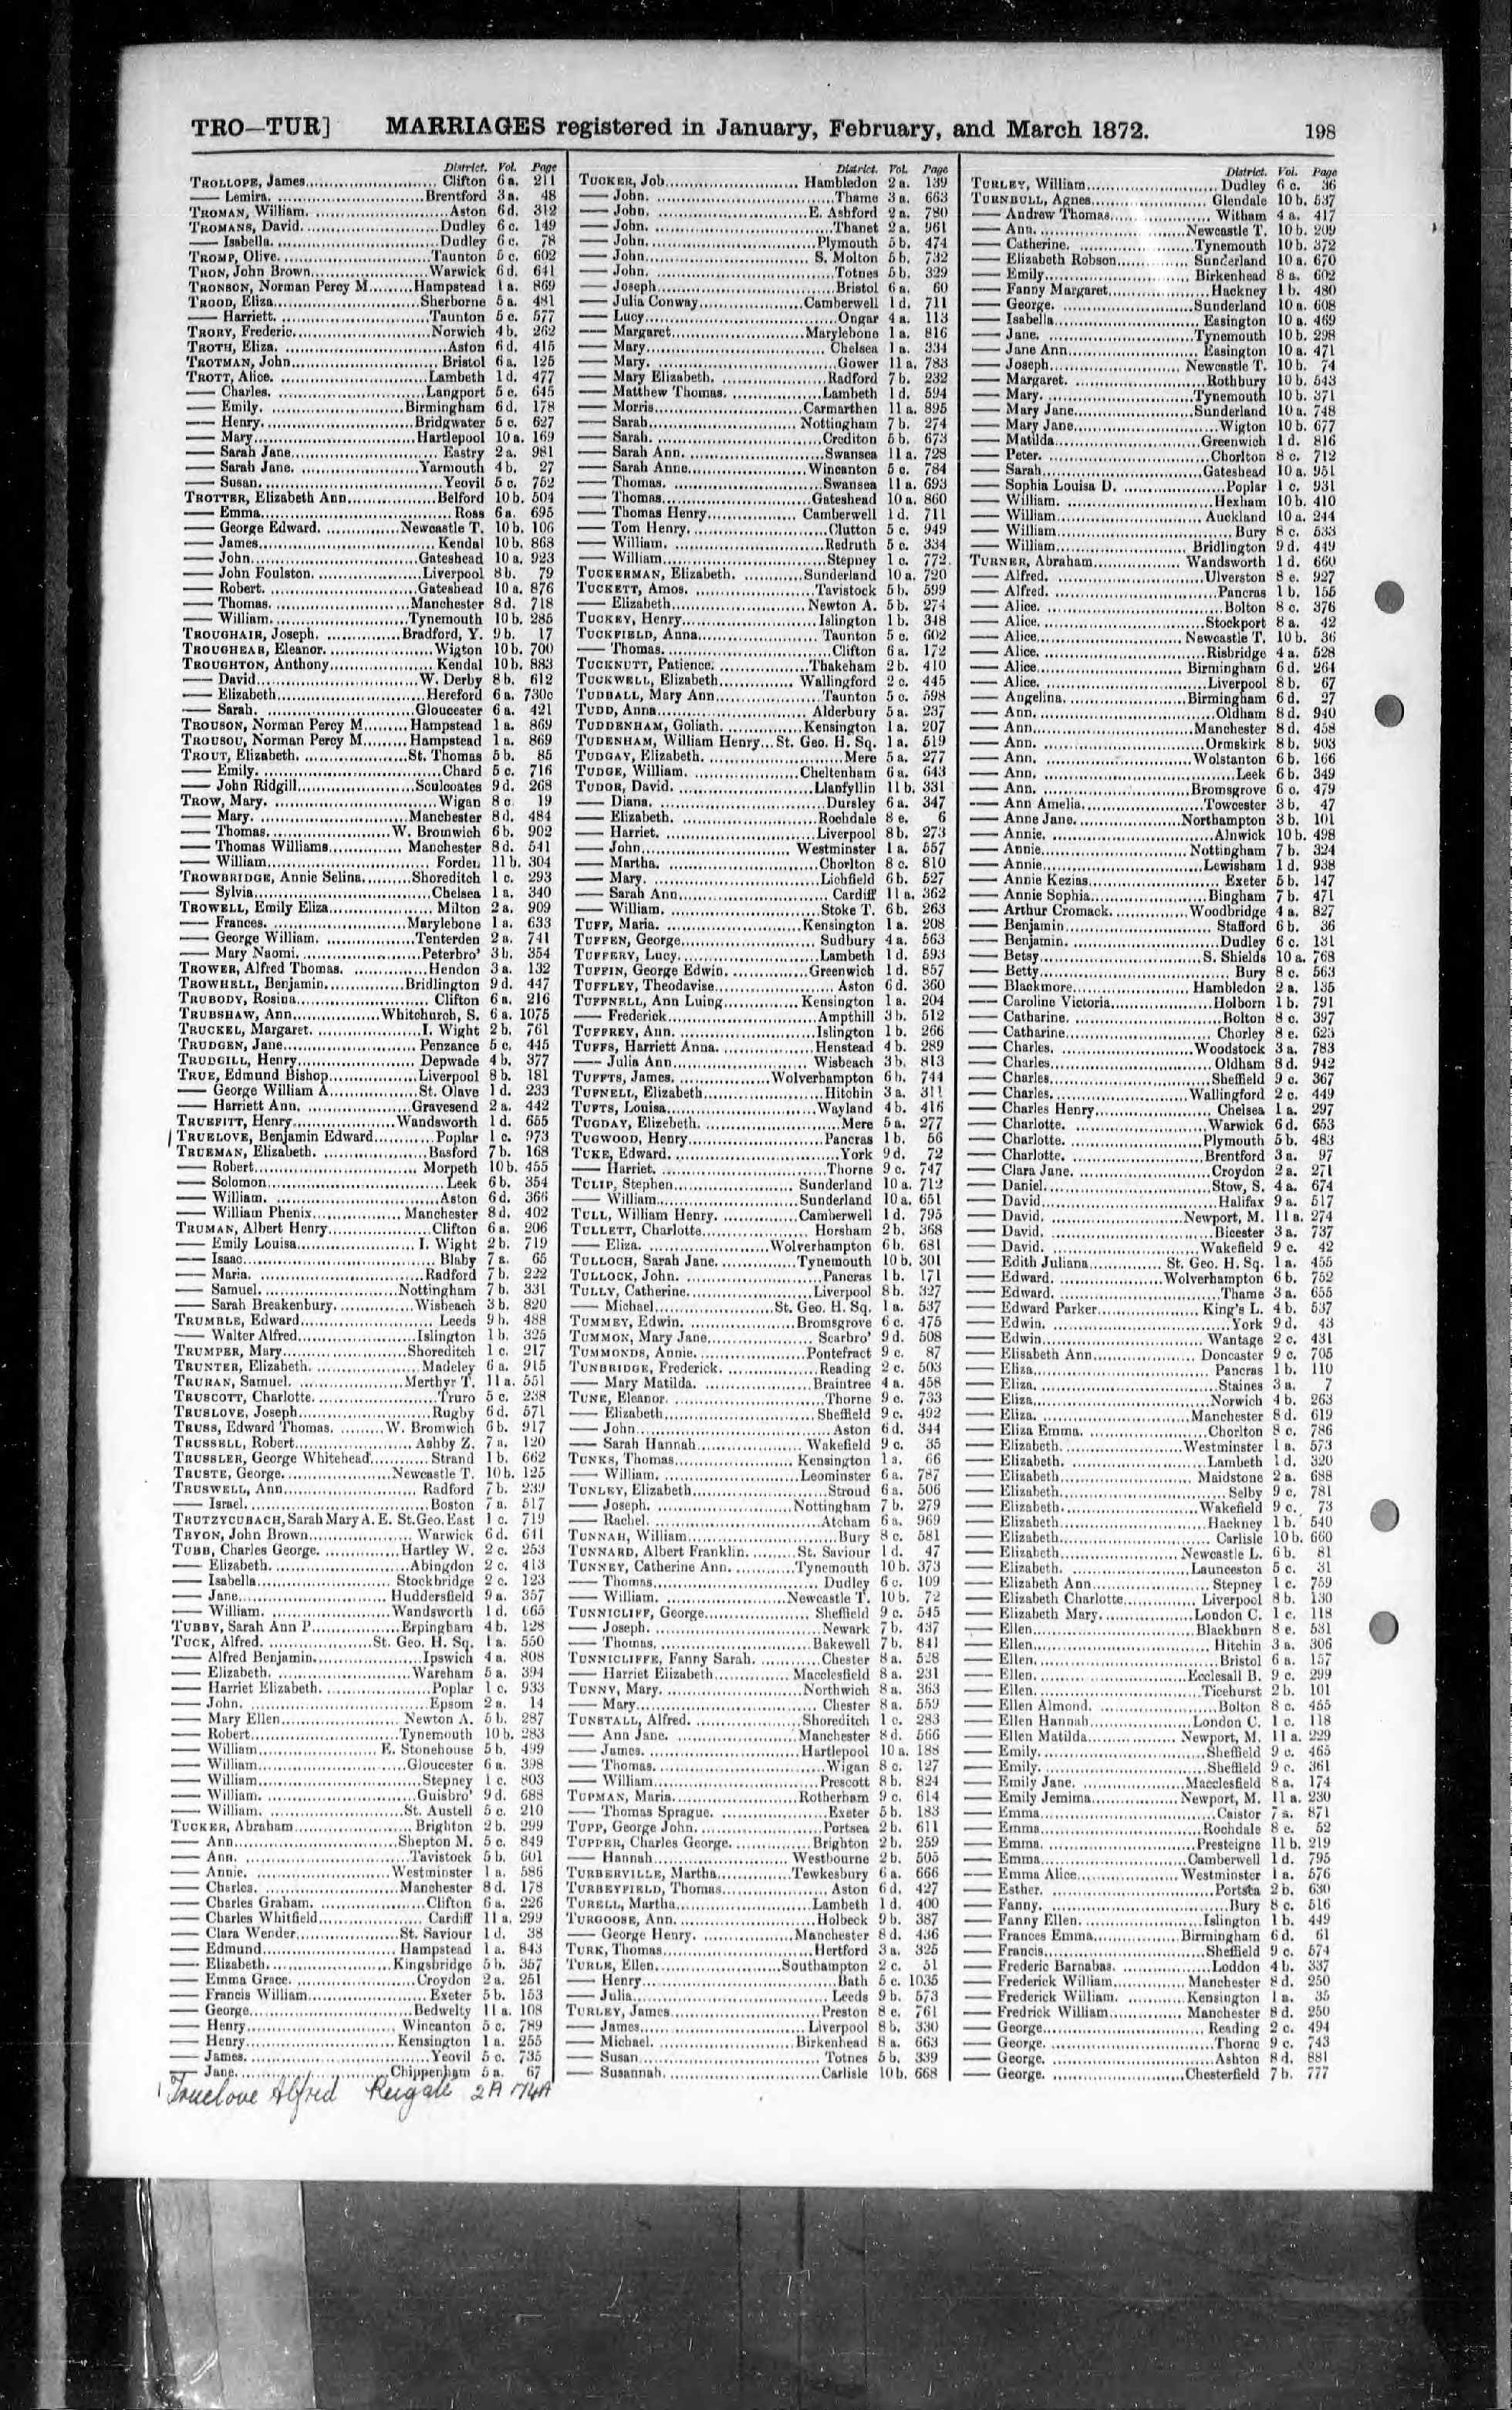 TRO—TUR] MARRIAGES registered in January, February, and March 1872. 198
District. Vol. Page
TROLLOPE, James. Clifton 6 a. 211
— Lemira. Brentford 3 a. 48
TROMAN, William. Aston 6 d. 312
TROMANS, David. Dudley 6 c. 149
— Isabella. Dudley 6 c. 78
TROMP, Olive. Taunton 5 c. 602
TRON, John Brown. Warwick 6 d. 641
TRONSON, Norman Percy M. Hampstead 1 a. 869
TROOD, Eliza. Sherborne 5 a. 481
— Harriett. Taunton 5 c. 577
TRORY, Frederic. Norwich 4 b. 262
TROTH, Eliza. Aston 6 d. 415
TROTMAN, John. Bristol 6 a. 125
TROTT, Alice. Lambeth 1 d. 477
— Charles. Langport 5 c. 645
— Emily. Birmingham 6 d. 178
— Henry. Bridgwater 5 c. 627
— Mary. Hartlepool 10 a. 169
— Sarah Jane. Eastry 2 a. 981
— Sarah Jane. Yarmouth 4 b. 27
— Susan. Yeovil 5 c. 752
TROTTER, Elizabeth Ann. Belford 10 b. 504
— Emma. Ross 6 a. 695
— George Edward. Newcastle T. 10 b. 106
— James. Kendal 10 b. 868
— John. Gateshead 10 a. 923
— John Foulston. Liverpool 8 b. 79
— Robert. Gateshead 10 a. 876
— Thomas. Manchester 8 d. 718
— William. Tynemouth 10 b. 285
TROUGHAIR, Joseph. Bradford, Y. 9 b. 17
TROUGHEAR, Eleanor. Wigton 10 b. 700
TROUGHTON, Anthony. Kendal 10 b. 883
— David. W. Derby 8 b. 612
— Elizabeth. Hereford 6 a. 730c
— Sarah. Gloucester 6 a. 421
TROUSON, Norman Percy M. Hampstead 1 a. 869
TROUSOU, Norman Percy M. Hampstead 1 a. 869
TROUT, Elizabeth. St. Thomas 5 b. 85
— Emily. Chard 5 c. 716
— John Ridgill. Sculcoates 9 d. 268
TROW, Mary. Wigan 8 c. 19
— Mary. Manchester 8 d. 484
— Thomas. W. Bromwich 6 b. 902
— Thomas Williams. Manchester 8 d. 541
— William. Forden 11 b. 304
TROWBRIDGE, Annie Selina. Shoreditch 1 c. 293
— Sylvia. Chelsea 1 a. 340
TROWELL, Emily Eliza. Milton 2 a. 909
— Frances. Marylebone 1 a. 633
— George William. Tenterden 2 a. 741
— Mary Naomi. Peterbro' 3 b. 354
TROWER, Alfred Thomas. Hendon 3 a. 132
TROWHELL, Benjamin. Bridlington 9 d. 447
TRUBODY, Rosina. Clifton 6 a. 216
TRUBSHAW, Ann. Whitchurch, S. 6 a. 1075
TRUCKEL, Margaret. I. Wight 2 b. 761
TRUDGEN, Jane. Penzance 5 c. 445
TRUDGILL, Henry. Depwade 4 b. 377
TRUE, Edmund Bishop. Liverpool 8 b. 181
— George William A. St. Olave 1 d. 233
— Harriett Ann. Gravesend 2 a. 442
TRUEFITT, Henry. Wandsworth 1 d. 655
TRUELOVE, Benjamin Edward. Poplar 1 c. 973
TRUEMAN, Elizabeth. Basford 7 b. 168
— Robert. Morpeth 10 b. 455
— Solomon. Leek 6 b. 354
— William. Aston 6 d. 366
— William Phenix. Manchester 8 d. 402
TRUMAN, Albert Henry. Clifton 6 a. 206
— Emily Louisa. I. Wight 2 b. 719
— Isaac. Blaby 7 a. 65
— Maria. Radford 7 b. 222
— Samuel. Nottingham 7 b. 331
— Sarah Breakenbury. Wisbeach 3 b. 820
TRUMBLE, Edward. Leeds 9 b. 488
— Walter Alfred. Islington 1 b. 325
TRUMPER, Mary. Shoreditch 1 c. 217
TRUNTER, Elizabeth. Madeley 6 a. 915
TRURAN, Samuel. Merthyr T. 11 a. 551
TRUSCOTT, Charlotte. Truro 5 c. 238
TRUSLOVE, Joseph. Rugby 6 d. 571
TRUSS, Edward Thomas. W. Bromwich 6 b. 917
TRUSSELL, Robert. Ashby Z. 7 a. 120
TRUSSLER, George Whitehead. Strand 1 b. 662
TRUSTE, George. Newcastle T. 10 b. 125
TRUSWELL, Ann. Radford 7 b. 239
— Israel. Boston 7 a. 517
TRUTZYCUBACH, Sarah Mary A. E. St.Geo.East 1 c. 719
TRYON, John Brown. Warwick 6 d. 611
TUBB, Charles George. Hartley W. 2 c. 253
— Elizabeth. Abingdon 2 c. 413
— Isabella. Stockbridge 2 c. 123
— Jane. Huddersfield 9 a. 357
— William. Wandsworth 1 d. 665
TUBBY, Sarah Ann P. Erpingham 4 b. 128
TUCK, Alfred. St. Geo. H. Sq. 1 a. 550
— Alfred Benjamin. Ipswich 4 a. 808
— Elizabeth. Wareham 5 a. 394
— Harriet Elizabeth. Poplar 1 c. 933
— John. Epsom 2 a. 14
— Mary Ellen. Newton A. 5 b. 287
— Robert. Tynemouth 10 b. 283
— William. E. Stonehouse 5 b. 499
— William. Gloucester 6 a. 398
— William. Stepney 1 c. 803
— William. Guisbro' 9 d. 688
— William. St. Austell 5 c. 210
TUCKER, Abraham. Brighton 2 b. 299
— Ann. Shepton M. 5 c. 849
— Ann. Tavistock 5 b. 601
— Annie. Westminster 1 a. 586
— Charles. Manchester 8 d. 178
— Charles Graham. Clifton 6 a. 226
— Charles Whitfield. Cardiff 11 a. 299
— Clara Wender. St. Saviour 1 d. 38
— Edmund. Hampstead 1 a. 843
— Elizabeth. Kingsbridge 5 b. 357
— Emma Grace. Croydon 2 a. 251
— Francis William. Exeter 5 b. 153
— George. Bedwelty 11 a. 108
— Henry. Wincanton 5 c. 789
— Henry. Kensington 1 a. 255
— James. Yeovil 5 c. 735
— Jane. Chippenham 5 a. 67
Truelove Alfred Reigate 2A 174A
District. Vol. Page
TUCKER, Job. Hambledon 2 a. 139
— John. Thame 3 a. 663
— John. E. Ashford 2 a. 780
— John. Thanet 2 a. 961
— John. Plymouth 5 b. 474
— John. S. Molton 5 b. 732
— John. Totnes 5 b. 329
— Joseph. Bristol 6 a. 60
— Julia Conway. Camberwell 1 d. 711
— Lucy. Ongar 4 a. 113
— Margaret. Marylebone 1 a. 816
— Mary. Chelsea 1 a. 334
— Mary. Gower 11 a. 783
— Mary Elizabeth. Radford 7 b. 232
— Matthew Thomas. Lambeth 1 d. 594
— Morris. Carmarthen 11 a. 895
— Sarah. Nottingham 7 b. 274
— Sarah. Crediton 5 b. 673
— Sarah Ann. Swansea 11 a. 728
— Sarah Anne. Wincanton 5 c. 784
— Thomas. Swansea 11 a. 693
— Thomas. Gateshead 10 a. 860
— Thomas Henry. Camberwell 1 d. 711
— Tom Henry. Clutton 5 c. 949
— William. Redruth 5 c. 334
— William. Stepney 1 c. 772
TUCKERMAN, Elizabeth. Sunderland 10 a. 720
TUCKETT, Amos. Tavistock 5 b. 599
— Elizabeth. Newton A. 5 b. 274
TUCKEY, Henry. Islington 1 b. 348
TUCKFIELD, Anna. Taunton 5 c. 602
— Thomas. Clifton 6 a. 172
TUCKNUTT, Patience. Thakeham 2 b. 410
TUCKWELL, Elizabeth. Wallingford 2 c. 445
TUDBALL, Mary Ann. Taunton 5 c. 598
TUDD, Anna. Alderbury 5 a. 237
TUDDENHAM, Goliath. Kensington 1 a. 207
TUDENHAM, William Henry. St. Geo. H. Sq. 1 a. 519
TUDGAY, Elizabeth. Mere 5 a. 277
TUDGE, William. Cheltenham 6 a. 643
TUDOR, David. Llanfyllin 11 b. 331
— Diana. Dursley 6 a. 347
— Elizabeth. Rochdale 8 e. 6
— Harriet. Liverpool 8 b. 273
— John. Westminster 1 a. 557
— Martha. Chorlton 8 c. 810
— Mary. Lichfield 6 b. 527
— Sarah Ann. Cardiff 11 a. 362
— William. Stoke T. 6 b. 263
TUFF, Maria. Kensington 1 a. 208
TUFFEN, George. Sudbury 4 a. 563
TUFFERY, Lucy. Lambeth 1 d. 593
TUFFIN, George Edwin. Greenwich 1 d. 857
TUFFLEY, Theodavise. Aston 6 d. 360
TUFFNELL, Ann Luing. Kensington 1 a. 204
— Frederick. Ampthill 3 b. 512
TUFFREY, Ann. Islington 1 b. 266
TUFFS, Harriett Anna. Henstead 4 b. 289
— Julia Ann. Wisbeach 3 b. 813
TUFFTS, James. Wolverhampton 6 b. 744
TUFNELL, Elizabeth. Hitchin 3 a. 311
TUFTS, Louisa. Wayland 4 b. 416
TUGDAY, Elizebeth. Mere 5 a. 277
TUGWOOD, Henry. Pancras 1 b. 56
TUKE, Edward. York 9 d. 72
— Harriet. Thorne 9 c. 747
TULIP, Stephen. Sunderland 10 a. 712
— William. Sunderland 10 a. 651
TULL, William Henry. Camberwell 1 d. 795
TULLETT, Charlotte. Horsham 2 b. 368
— Eliza. Wolverhampton 6 b. 681
TULLOCH, Sarah Jane. Tynemouth 10 b. 301
TULLOCK, John. Pancras 1 b. 171
TULLY, Catherine. Liverpool 8 b. 327
— Michael. St. Geo. H. Sq. 1 a. 537
TUMMEY, Edwin. Bromsgrove 6 c. 475
TUMMON, Mary Jane. Scarbro' 9 d. 508
TUMMONDS, Annie. Pontefract 9 c. 87
TUNBRIDGE, Frederick. Reading 2 c. 503
— Mary Matilda. Braintree 4 a. 458
TUNE, Eleanor. Thorne 9 c. 733
— Elizabeth. Sheffield 9 c. 492
— John. Aston 6 d. 344
— Sarah Hannah. Wakefield 9 c. 35
TUNKS, Thomas. Kensington 1 a. 66
— William. Leominster 6 a. 787
TUNLEY, Elizabeth. Stroud 6 a. 506
— Joseph. Nottingham 7 b. 279
— Rachel. Atcham 6 a. 969
TUNNAH, William. Bury 8 c. 581
TUNNARD, Albert Franklin. St. Saviour 1 d. 47
TUNNEY, Catherine Ann. Tynemouth 10 b. 373
— Thomas. Dudley 6 c. 109
— William. Newcastle T. 10 b. 72
TUNNICLIFF, George. Sheffield 9 c. 545
— Joseph. Newark 7 b. 437
— Thomas. Bakewell 7 b. 841
TUNNICLIFFE, Fanny Sarah. Chester 8 a. 528
— Harriet Elizabeth. Macclesfield 8 a. 231
TUNNY, Mary. Northwich 8 a. 363
— Mary. Chester 8 a. 559
TUNSTALL, Alfred. Shoreditch 1 c. 283
— Ann Jane. Manchester 8 d. 566
— James. Hartlepool 10 a. 188
— Thomas. Wigan 8 c. 127
— William. Prescott 8 b. 824
TUPMAN, Maria. Rotherham 9 c. 614
— Thomas Sprague. Exeter 5 b. 183
TUPP, George John. Portsea 2 b. 611
TUPPER, Charles George. Brighton 2 b. 259
— Hannah. Westbourne 2 b. 505
TURBERVILLE, Martha. Tewkesbury 6 a. 666
TURBEYFIELD, Thomas. Aston 6 d. 427
TURELL, Martha. Lambeth 1 d. 400
TURGOOSE, Ann. Holbeck 9 b. 387
— George Henry. Manchester 8 d. 436
TURK, Thomas. Hertford 3 a. 325
TURLE, Ellen. Southampton 2 c. 51
— Henry. Bath 5 c. 1035
— Julia. Leeds 9 b. 573
TURLEY, James. Preston 8 e. 761
— James. Liverpool 8 b. 330
— Michael. Birkenhead 8 a. 663
— Susan. Totnes 5 b. 339
— Susannah. Carlisle 10 b. 668
District. Vol. Page
TURLEY, William. Dudley 6 c. 36
TURNBULL, Agnes. Glendale 10 b. 537
— Andrew Thomas. Witham 4 a. 417
— Ann. Newcastle T. 10 b. 209
— Catherine. Tynemouth 10 b. 372
— Elizabeth Robson. Sunderland 10 a. 670
— Emily. Birkenhead 8 a. 602
— Fanny Margaret. Hackney 1 b. 480
— George. Sunderland 10 a. 608
— Isabella. Easington 10 a. 469
— Jane. Tynemouth 10 b. 298
— Jane Ann. Easington 10 a. 471
— Joseph. Newcastle T. 10 b. 74
— Margaret. Rothbury 10 b. 543
— Mary. Tynemouth 10 b. 371
— Mary Jane. Sunderland 10 a. 748
— Mary Jane. Wigton 10 b. 677
— Matilda. Greenwich 1 d. 816
— Peter. Chorlton 8 c. 712
— Sarah. Gateshead 10 a. 951
— Sophia Louisa D. Poplar 1 c. 931
— William. Hexham 10 b. 410
— William. Auckland 10 a. 244
— William. Bury 8 c. 533
— William. Bridlington 9 d. 449
TURNER, Abraham. Wandsworth 1 d. 660
— Alfred. Ulverston 8 e. 927
— Alfred. Pancras 1 b. 155
— Alice. Bolton 8 c. 376
— Alice. Stockport 8 a. 42
— Alice. Newcastle T. 10 b. 36
— Alice. Risbridge 4 a. 528
— Alice. Birmingham 6 d. 264
— Alice. Liverpool 8 b. 67
— Angelina. Birmingham 6 d. 27
— Ann. Oldham 8 d. 940
— Ann. Manchester 8 d. 458
— Ann. Ormskirk 8 b. 903
— Ann. Wolstanton 6 b. 166
— Ann. Leek 6 b. 349
— Ann. Bromsgrove 6 c. 479
— Ann Amelia. Towcester 3 b. 47
— Anne Jane. Northampton 3 b. 101
— Annie. Alnwick 10 b. 498
— Annie. Nottingham 7 b. 324
— Annie. Lewisham 1 d. 938
— Annie Kezias. Exeter 5 b. 147
— Annie Sophia. Bingham 7 b. 471
— Arthur Cromack. Woodbridge 4 a. 827
— Benjamin. Stafford 6 b. 36
— Benjamin. Dudley 6 c. 131
— Betsy. S. Shields 10 a. 768
— Betty. Bury 8 c. 563
— Blackmore. Hambledon 2 a. 135
— Caroline Victoria. Holborn 1 b. 791
— Catharine. Bolton 8 c. 397
— Catharine. Chorley 8 e. 623
— Charles. Woodstock 3 a. 783
— Charles. Oldham 8 d. 942
— Charles. Sheffield 9 c. 367
— Charles. Wallingford 2 c. 449
— Charles Henry. Chelsea 1 a. 297
— Charlotte. Warwick 6 d. 653
— Charlotte. Plymouth 5 b. 483
— Charlotte. Brentford 3 a. 97
— Clara Jane. Croydon 2 a. 271
— Daniel. Stow, S. 4 a. 674
— David. Halifax 9 a. 517
— David. Newport, M. 11 a. 274
— David. Bicester 3 a. 737
— David. Wakefield 9 c. 42
— Edith Juliana. St. Geo. H. Sq. 1 a. 455
— Edward. Wolverhampton 6 b. 752
— Edward. Thame 3 a. 655
— Edward Parker. King's L. 4 b. 537
— Edwin. York 9 d. 43
— Edwin. Wantage 2 c. 431
— Elisabeth Ann. Doncaster 9 c. 705
— Eliza. Pancras 1 b. 110
— Eliza. Staines 3 a. 7
— Eliza. Norwich 4 b. 263
— Eliza. Manchester 8 d. 619
— Eliza Emma. Chorlton 8 c. 786
— Elizabeth. Westminster 1 a. 573
— Elizabeth. Lambeth 1 d. 320
— Elizabeth. Maidstone 2 a. 688
— Elizabeth. Selby 9 c. 781
— Elizabeth. Wakefield 9 c. 73
— Elizabeth. Hackney 1 b. 540
— Elizabeth. Carlisle 10 b. 660
— Elizabeth. Newcastle L. 6 b. 81
— Elizabeth. Launceston 5 c. 31
— Elizabeth Ann. Stepney 1 c. 759
— Elizabeth Charlotte. Liverpool 8 b. 130
— Elizabeth Mary. London C. 1 c. 118
— Ellen. Blackburn 8 e. 531
— Ellen. Hitchin 3 a. 306
— Ellen. Bristol 6 a. 157
— Ellen. Ecclesall B. 9 c. 299
— Ellen. Ticehurst 2 b. 101
— Ellen Almond. Bolton 8 c. 465
— Ellen Hannah. London C. 1 c. 118
— Ellen Matilda. Newport, M. 11 a. 229
— Emily. Sheffield 9 c. 465
— Emily. Sheffield 9 c. 361
— Emily Jane. Macclesfield 8 a. 174
— Emily Jemima. Newport, M. 11 a. 230
— Emma. Caistor 7 a. 871
— Emma. Rochdale 8 c. 52
— Emma. Presteigne 11 b. 219
— Emma. Camberwell 1 d. 795
— Emma Alice. Westminster 1 a. 576
— Esther. Portsea 2 b. 630
— Fanny. Bury 8 c. 516
— Fanny Ellen. Islington 1 b. 449
— Frances Emma. Birmingham 6 d. 61
— Francis. Sheffield 9 c. 574
— Frederic Barnabas. Loddon 4 b. 337
— Frederick William. Manchester 8 d. 250
— Frederick William. Kensington 1 a. 35
— Fredrick William. Manchester 8 d. 250
— George. Reading 2 c. 494
— George. Thorne 9 c. 743
— George. Ashton 8 d. 881
— George. Chesterfield 7 b. 777